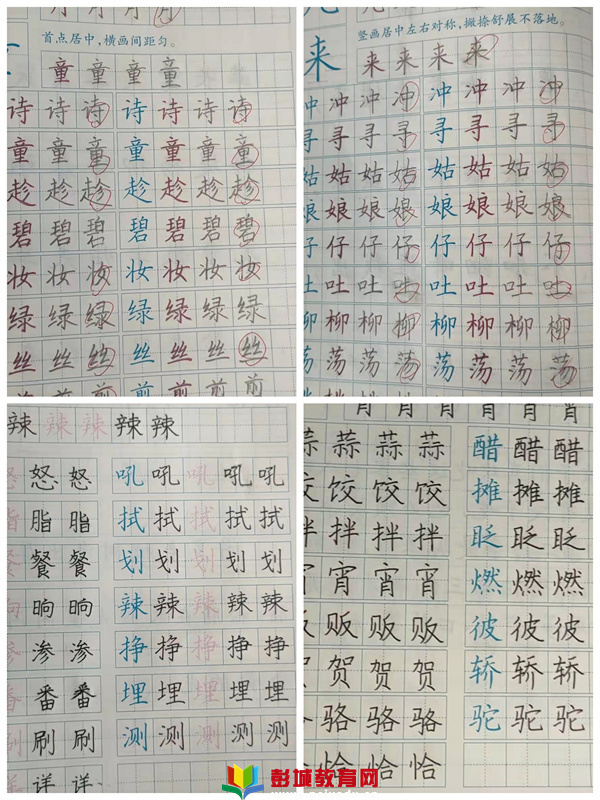 首点居中，横画间距匀。
童 童 童 童
诗 诗 诗 诗 诗 诗 诗
童 童 童 童 童 童 童
趁 趁 趁 趁 趁 趁 趁
碧 碧 碧 碧 碧 碧 碧
妆 妆 妆 妆 妆 妆 妆
绿 绿 绿 绿 绿 绿 绿
丝 丝 丝 丝 丝 丝 丝
前 前 前 前
竖画居中左右对称，撇捺舒展不落地。
来 来 来 来 来
冲 冲 冲 冲 冲 冲 冲 冲
寻 寻 寻 寻 寻 寻 寻 寻
姑 姑 姑 姑 姑 姑 姑 姑
娘 娘 娘 娘 娘 娘 娘 娘
仔 仔 仔 仔 仔 仔 仔 仔
吐 吐 吐 吐 吐 吐 吐 吐
柳 柳 柳 柳 柳 柳 柳 柳
荡 荡 荡 荡 荡 荡 荡 荡
辣 辣 辣 辣 辣
怒 怒 怒 吼 吼 吼 吼 吼
脂 脂 脂 拭 拭 拭 拭 拭
餐 餐 餐 划 划 划 划 划
晌 晌 晌 辣 辣 辣 辣 辣
渗 渗 渗 挣 挣 挣 挣 挣
番 番 番 埋 埋 埋 埋 埋
刷 刷 刷 测 测 测 测 测
详 详
蒜 蒜 蒜 蒜 醋 醋 醋
饺 饺 饺 饺 摊 摊 摊
拌 拌 拌 拌 眨 眨 眨
宵 宵 宵 宵 燃 燃 燃
贩 贩 贩 彼 彼 彼
贺 贺 贺 轿 轿 轿
骆 骆 骆 驼 驼 驼
恰 恰 恰
彭城教育网